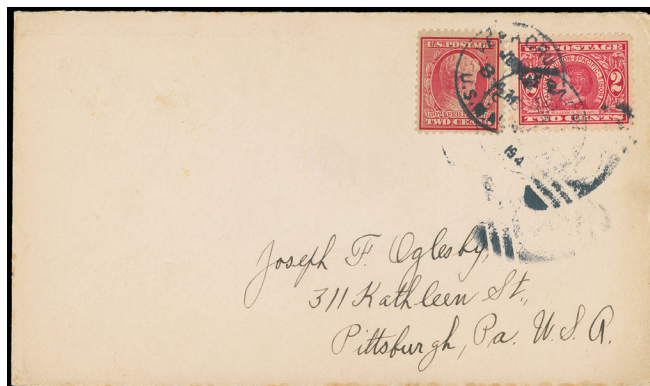 U.S. POSTAGE
TWO CENTS
U.S. POSTAGE
2
TWO CENTS
8 AM
Joseph F. Oglesby,
311 Kathleen St.,
Pittsburgh, Pa. U.S.A.